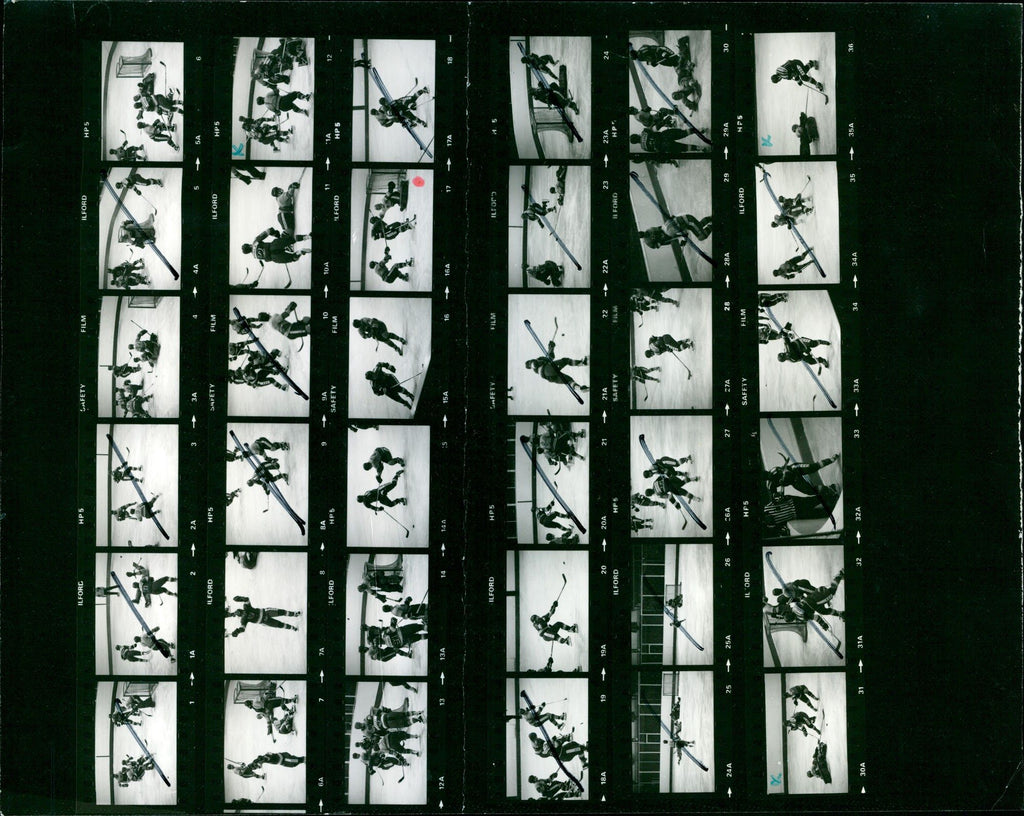 HP5 5A 6
ILFORD 4A 5
SAFETY FILM 3A 4
HP5 2A 3
ILFORD 1A 2
1
HP5 11A 12
ILFORD 10A 11
SAFETY FILM 9A 10
HP5 8A 9
ILFORD 7A 8
6A 7
HP5 17A 18
ILFORD 16A 17
SAFETY FILM 15A 16
HP5 14A 15
ILFORD 13A 14
12A 13
23A 24
ILFORD 22A 23
SAFETY FILM 21A 22
HP5 20A 21
ILFORD 19A 20
18A 19
HP5 29A 30
ILFORD 28A 29
SAFETY FILM 27A 28
HP5 26A 27
ILFORD 25A 26
24A 25
HP5 35A 36
ILFORD 34A 35
SAFETY FILM 33A 34
HP5 32A 33
ILFORD 31A 32
30A 31